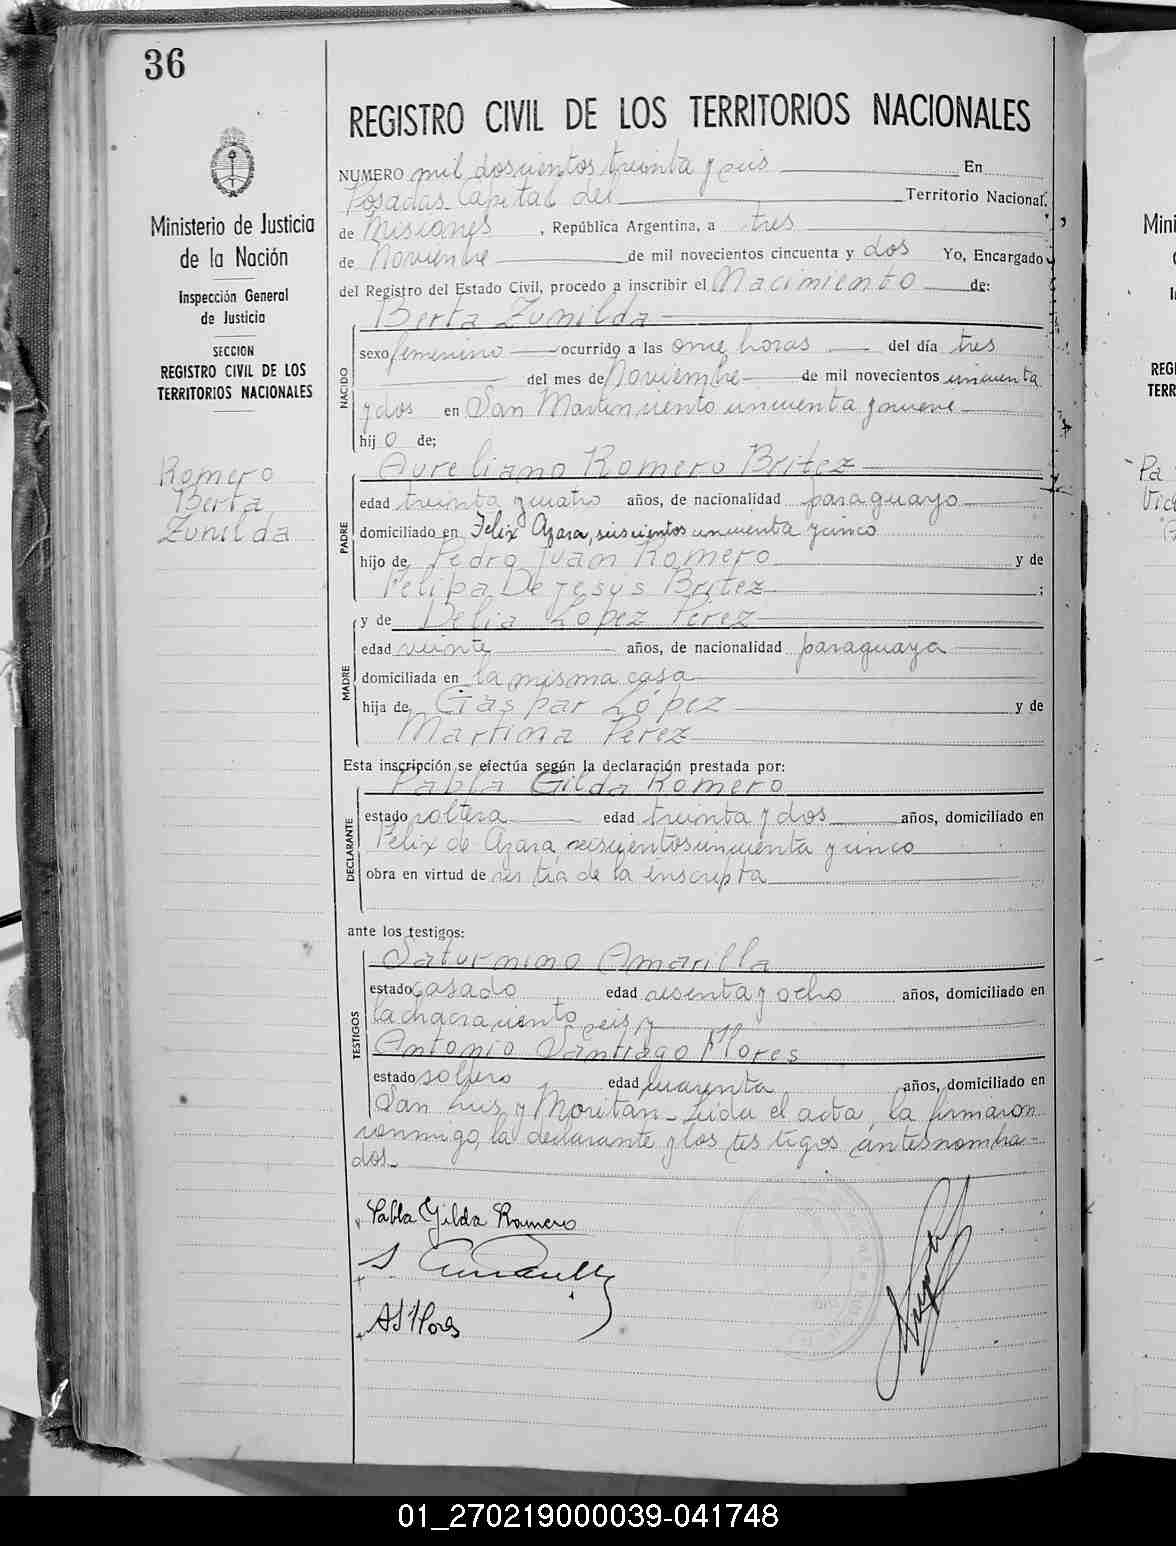 36
REGISTRO CIVIL DE LOS TERRITORIOS NACIONALES
Ministerio de Justicia
de la Nación
Inspección General
de Justicia
SECCION
REGISTRO CIVIL DE LOS
TERRITORIOS NACIONALES
Romero
Berta
Zunilda
NUMERO mil doscientos treinta y seis En
Posadas Capital del Territorio Nacional
de Misiones, República Argentina, a tres
de Noviembre de mil novecientos cincuenta y dos Yo, Encargado
del Registro del Estado Civil, procedo a inscribir el Nacimiento de:
Berta Zunilda
NACIDO
sexo femenino ocurrido a las once horas del día tres
del mes de Noviembre de mil novecientos cincuenta
y dos en San Martin, ciento cincuenta y nueve
hij o de;
PADRE
Aureliano Romero Britez
edad treinta y cuatro años, de nacionalidad paraguayo
domiciliado en Felix Azara, seiscientos cincuenta y cinco
hijo de Pedro Juan Romero y de
Felipa De Jesús Britez ;
MADRE
y de Delia López Pérez
edad veinte años, de nacionalidad paraguaya
domiciliada en la misma casa
hija de Gaspar López y de
Martina Pérez
Esta inscripción se efectúa según la declaración prestada por:
DECLARANTE
Pabla Gilda Romero
estado soltera edad treinta y dos años, domiciliado en
Felix de Azara, seiscientos cincuenta y cinco
obra en virtud de ser tía de la inscripta
ante los testigos:
TESTIGOS
Saturnino Amarilla
estado casado edad sesenta y ocho años, domiciliado en
la chacra ciento seis y
Antonio Santiago Flores
estado soltero edad cuarenta años, domiciliado en
San Luis y Moritan_ Leída el acta, la firmaron
conmigo, la declarante y los testigos antes nombra-
dos_
Pabla Gilda Romero
S. Amarilla
A S Flores
01_270219000039-041748